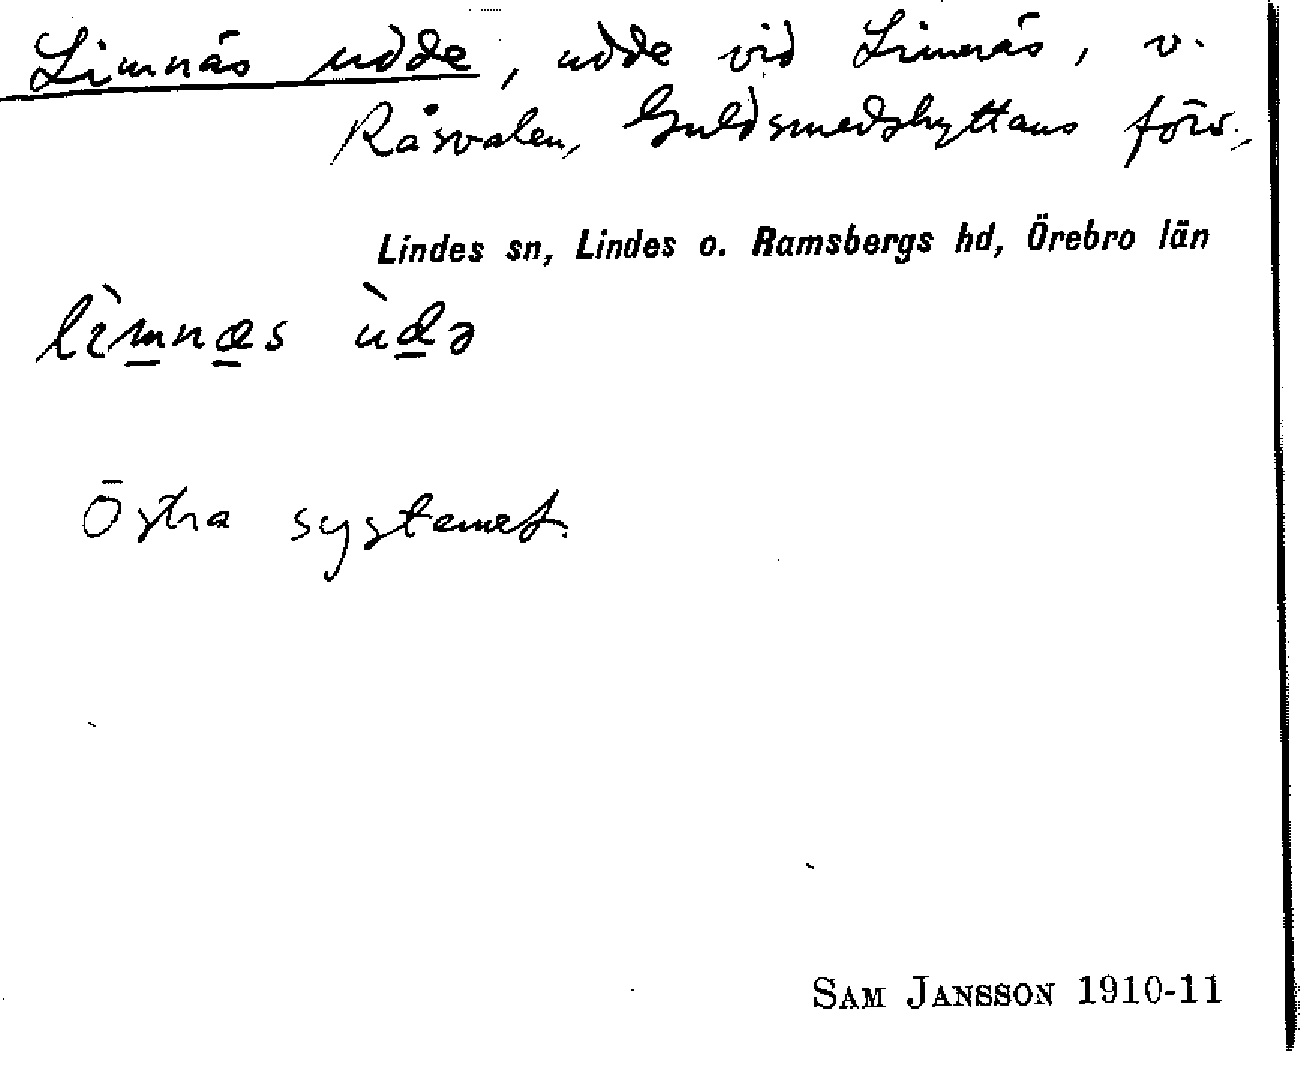 Limnäs udde, udde vid Limnäs, v.
Råsvalen, Guldsmedshyttans förs.,
Lindes sn, Lindes o. Ramsbergs hd, Örebro län
lìm̲næ̲s ùd̲ə
Östra systemet.
SAM JANSSON 1910-11